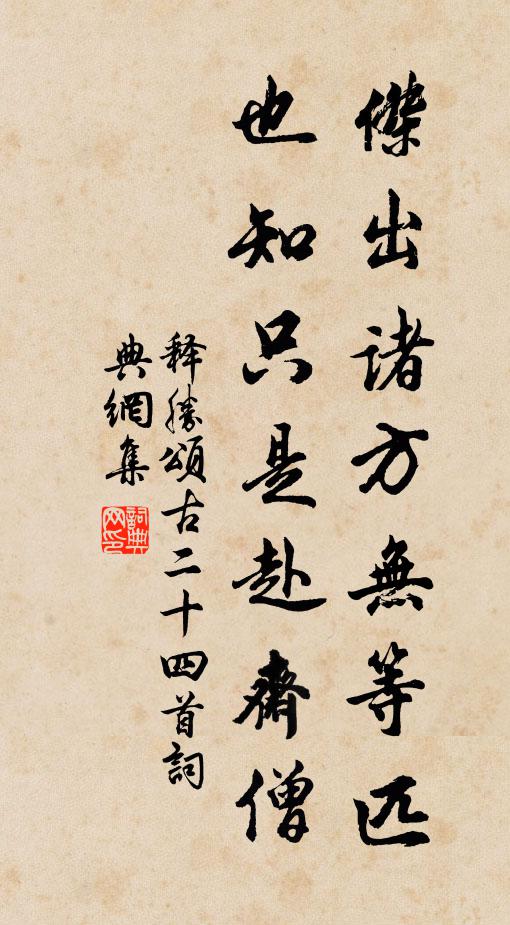 傑出諸方無等匹
也知只是赴齋僧
释勝頌古二十四首詞
典網集
詞典网印